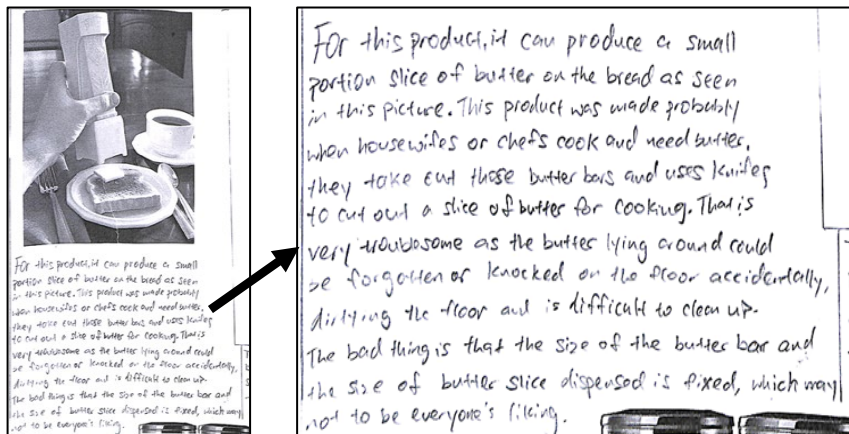 For this product, it can produce a small
portion slice of butter on the bread as seen
in this picture. This product was made probably
when housewifes or chefs cook and need butter,
they take out those butter bars and uses knifes
to cut out a slice of butter for cooking. That is
very troublesome as the butter lying around could
be forgotten or knocked on the floor accidentally,
dirtying the floor and is difficult to clean up.
The bad thing is that the size of the butter bar and
the size of butter slice dispensed is fixed, which may
not to be everyone's liking.
For this product, it can produce a small
portion slice of butter on the bread as seen
in this picture. This product was made probably
when housewifes or chefs cook and need butter,
they take out those butter bars and uses knifes
to cut out a slice of butter for cooking. That is
very troublesome as the butter lying around could
be forgotten or knocked on the floor accidentally,
dirtying the floor and is difficult to clean up.
The bad thing is that the size of the butter bar and
the size of butter slice dispensed is fixed, which may
not to be everyone's liking.